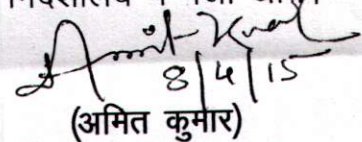 Amit Kumar
8/4/15
(अमित कुमार)